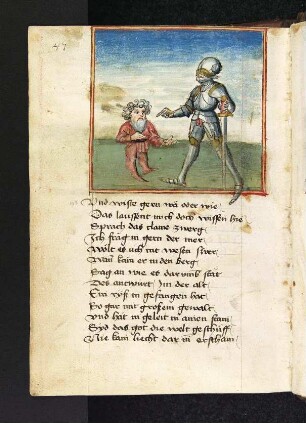 47
Und wiste gern wa oder wie
Das laussent mich doch wissen hie
Sprach das claine zwerg
Ich frag in gern der mer
Wolt es uch nit wesen swer
Wan kam er in den berg
Sag an wie es dar umb stat
Des antwurt Im der alt
Ein risß in gefangen hat
So gar mit großem gewalt
Und hat in geleit in ainen stain
Syd das got die welt geschüff
Nie kam liecht dar in erschain